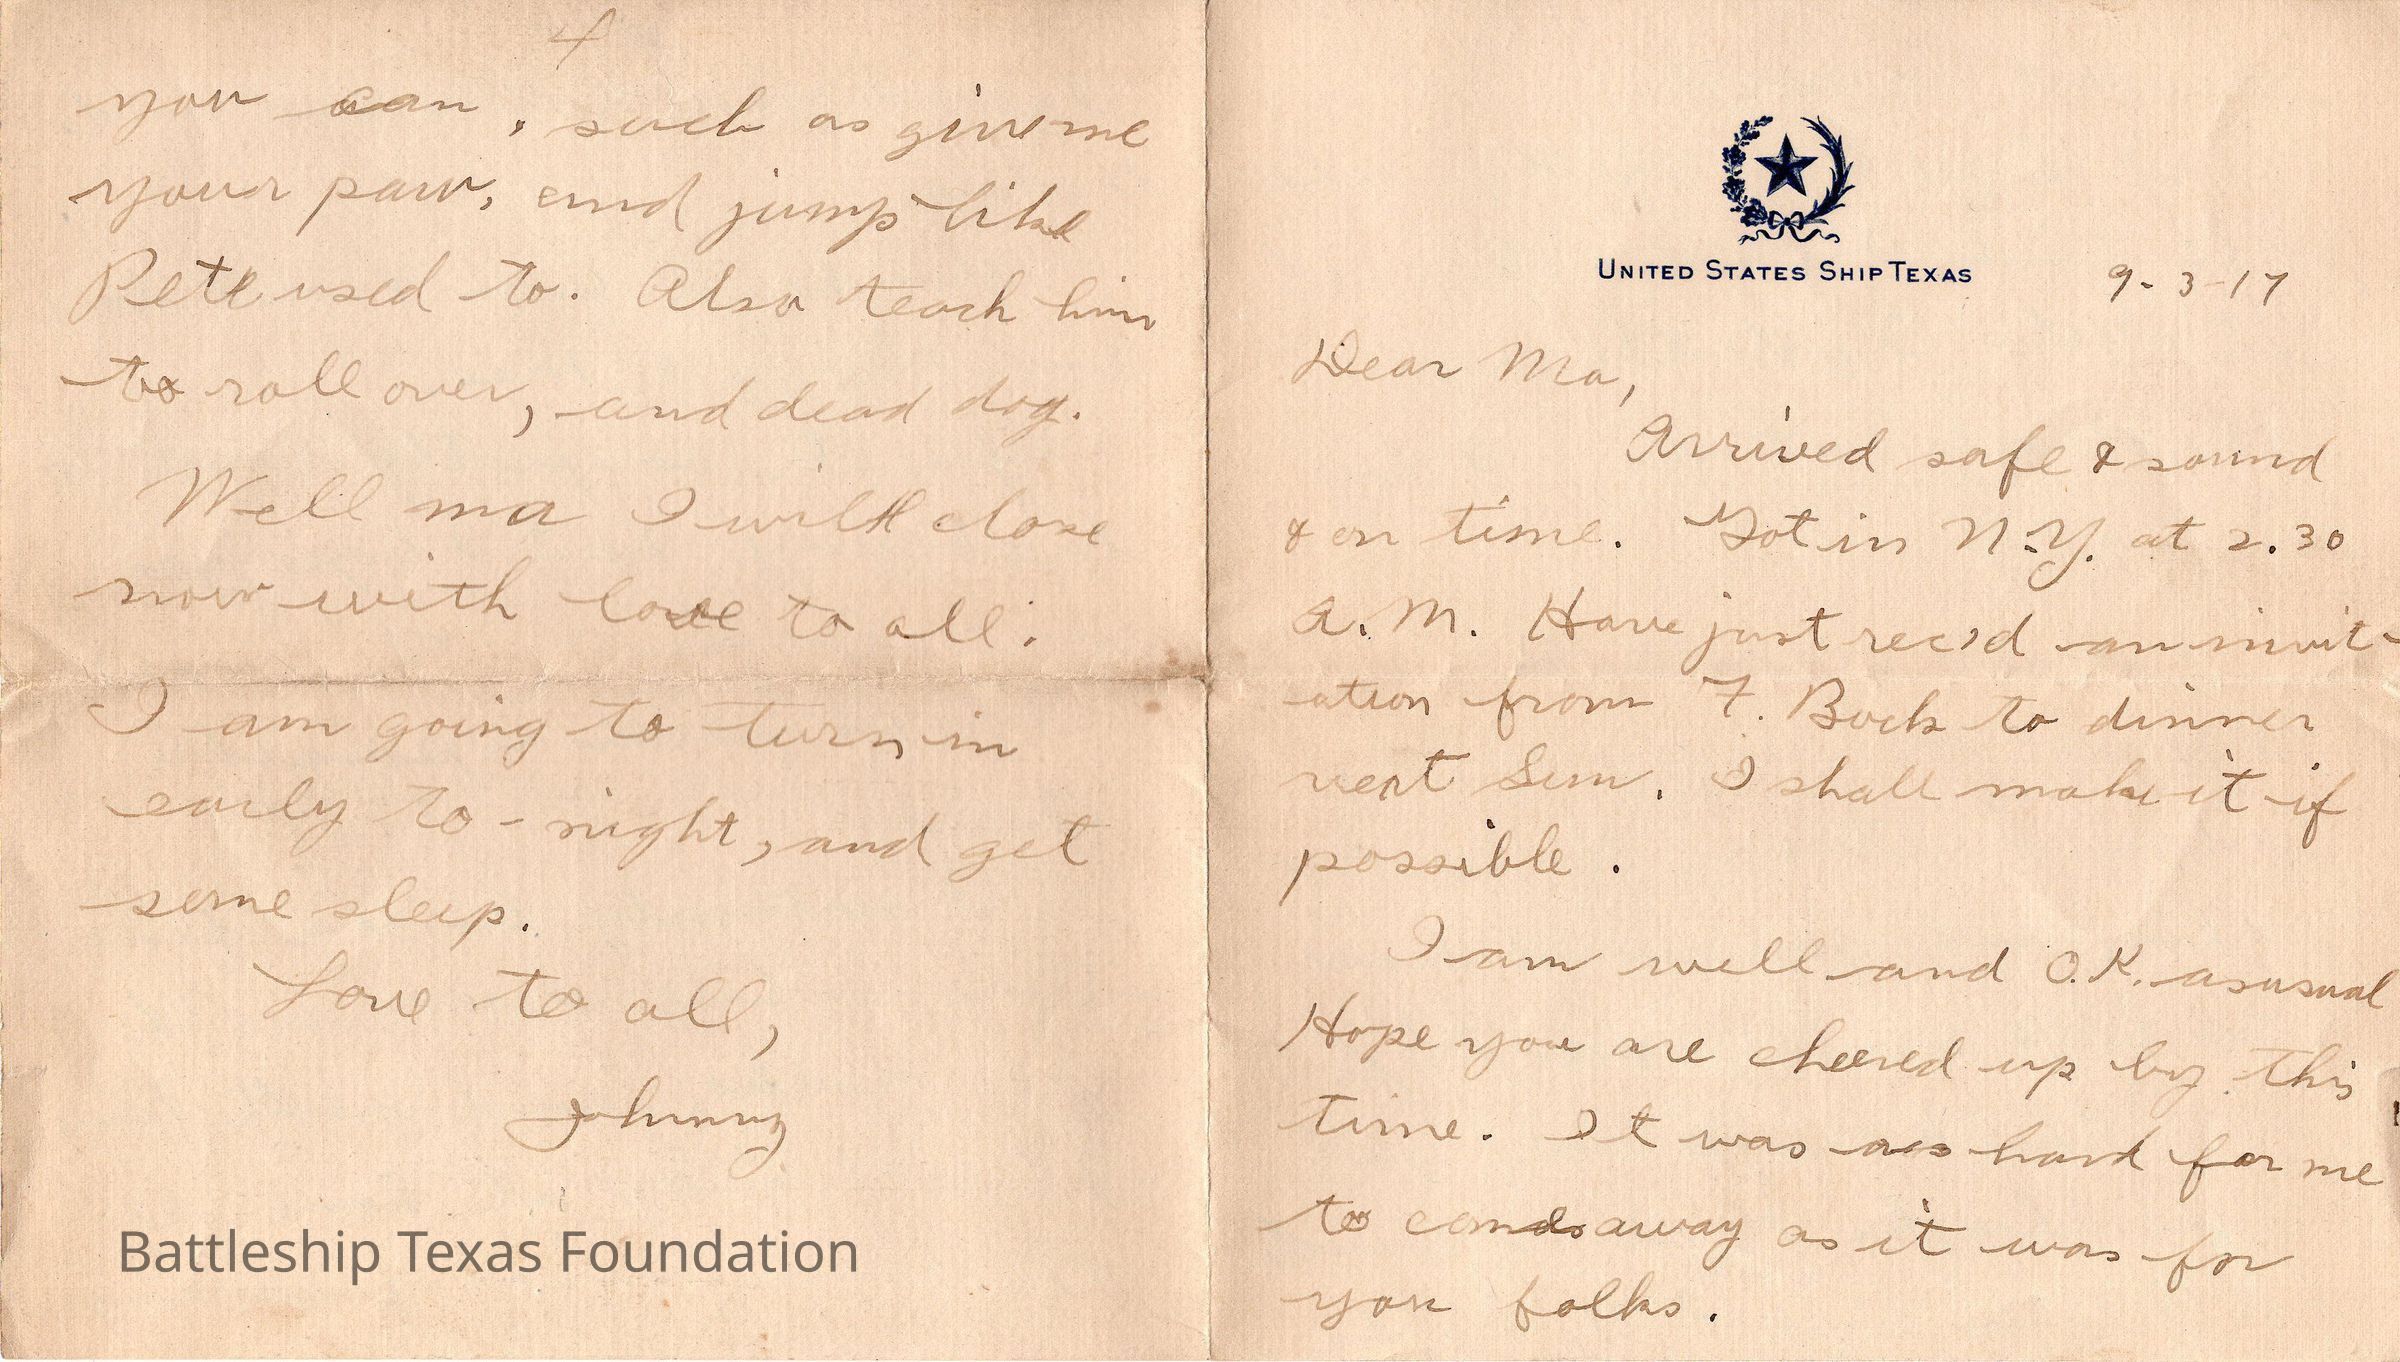 4
you can, such as give me
your paw, and jump like
Pete used to. Also teach him
to roll over, and dead dog.
Well ma I will close
now with love to all.
I am going to turn in
early to-night, and get
some sleep.
Love to all,
Johnny
Battleship Texas Foundation
UNITED STATES SHIP TEXAS
9-3-17
Dear Ma,
Arrived safe & sound
& on time. Got in N.Y. at 2.30
A.M. Have just rec'd an invit-
ation from F. Bock to dinner
next Sun. I shall make it if
possible.
I am well and O.K. as usual
Hope you are cheered up by this
time. It was as hard for me
to come away as it was for
you folks.